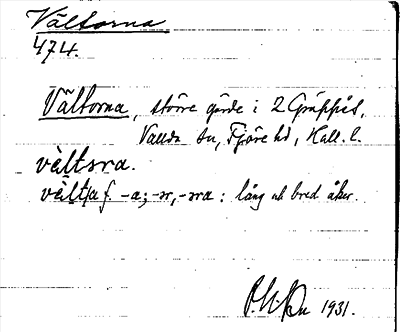 Vältorna
474.
Vältorna, större gärde i 2 Gräppås,
Vallda sn, Fjäre hd, Hall. l.
vèltsra.
vèlt/a f. -a; -ɜr, -ɜra: lång och bred åker.
1931.